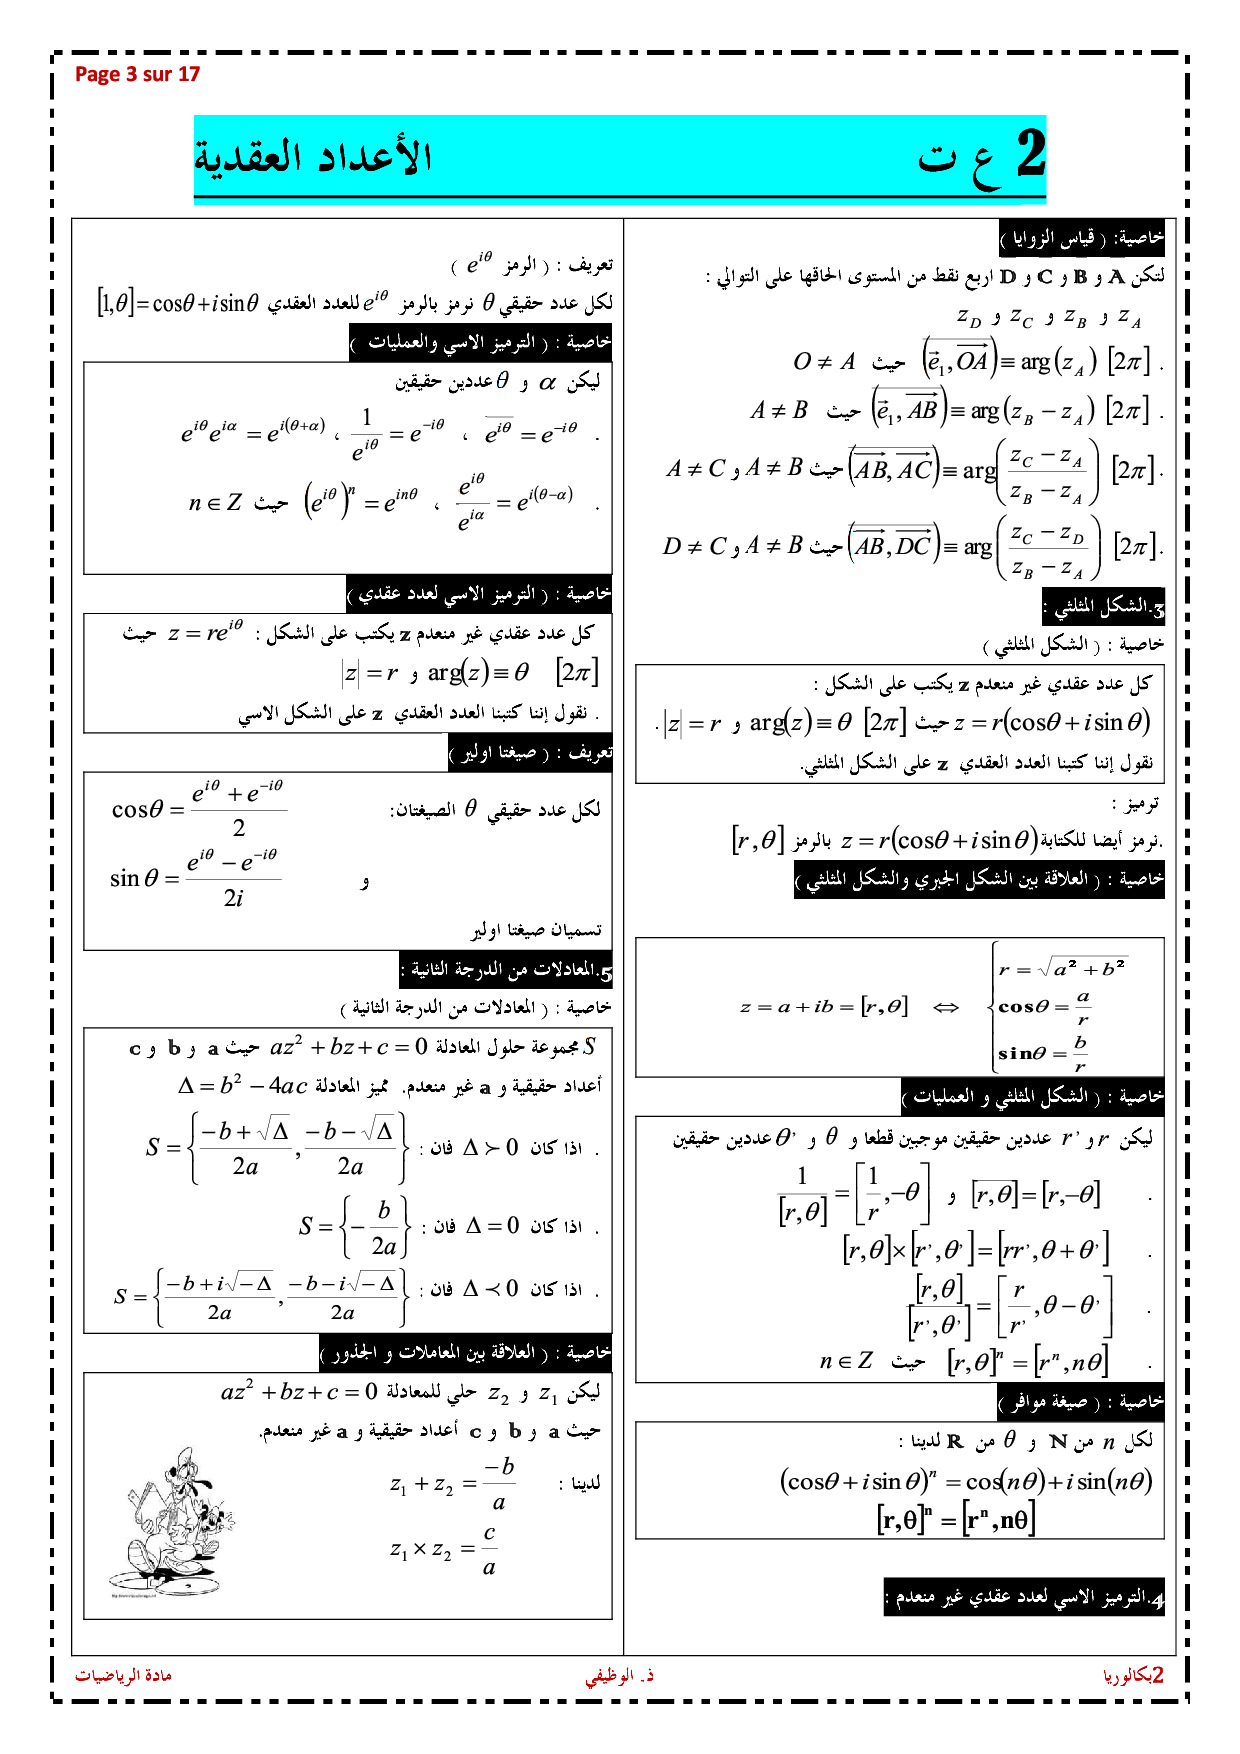 Page 3 sur 17
2 ع ت الأعداد العقدية
خاصية: ( قياس الزوايا )
لتكن A و B و C و D اربع نقط من المستوى الحاقها على التوالي :
z_A و z_B و z_C و z_D
. (e⃗₁, OA⃗) ≡ arg(z_A) [2π] حيث O ≠ A
. (e⃗₁, AB⃗) ≡ arg(z_B − z_A) [2π] حيث A ≠ B
. (AB⃗, AC⃗) ≡ arg((z_C − z_A)/(z_B − z_A)) [2π] حيث A ≠ B و A ≠ C
. (AB⃗, DC⃗) ≡ arg((z_C − z_D)/(z_B − z_A)) [2π] حيث A ≠ B و D ≠ C
3.الشكل المثلثي :
خاصية : ( الشكل المثلثي )
كل عدد عقدي غير منعدم z يكتب على الشكل :
z = r(cosθ + i sinθ) حيث arg(z) ≡ θ [2π] و |z| = r .
نقول إننا كتبنا العدد العقدي z على الشكل المثلثي.
ترميز :
.نرمز أيضا للكتابة z = r(cosθ + i sinθ) بالرمز [r,θ]
خاصية : ( العلاقة بين الشكل الجبري والشكل المثلثي )
z = a + ib = [r,θ] ⇔ { r = √(a² + b²)
cosθ = a/r
sinθ = b/r
خاصية : ( الشكل المثلثي و العمليات )
ليكن r و r' عددين حقيقين موجبين قطعا و θ و θ' عددين حقيقين
. \overline{[r,θ]} = [r,−θ] و 1/[r,θ] = [1/r,−θ]
. [r,θ]×[r',θ'] = [rr',θ + θ']
. [r,θ]/[r',θ'] = [r/r',θ − θ']
. [r,θ]ⁿ = [rⁿ,nθ] حيث n ∈ Z
خاصية : ( صيغة موافر )
لكل n من N و θ من R لدينا :
(cosθ + i sinθ)ⁿ = cos(nθ) + i sin(nθ)
[r,θ]ⁿ = [rⁿ,nθ]
4.الترميز الاسي لعدد عقدي غير منعدم :
تعريف : ( الرمز e^{iθ} )
لكل عدد حقيقي θ نرمز بالرمز e^{iθ} للعدد العقدي [1,θ] = cosθ + i sinθ
خاصية : ( الترميز الاسي والعمليات )
ليكن α و θ عددين حقيقين
. \overline{e^{iθ}} = e^{−iθ} ، 1/e^{iθ} = e^{−iθ} ، e^{iθ}e^{iα} = e^{i(θ+α)}
. e^{iθ}/e^{iα} = e^{i(θ−α)} ، (e^{iθ})ⁿ = e^{inθ} حيث n ∈ Z
خاصية : ( الترميز الاسي لعدد عقدي )
كل عدد عقدي غير منعدم z يكتب على الشكل : z = re^{iθ} حيث
arg(z) ≡ θ [2π] و |z| = r
. نقول إننا كتبنا العدد العقدي z على الشكل الاسي
تعريف : ( صيغتا اولير )
لكل عدد حقيقي θ الصيغتان: cosθ = (e^{iθ} + e^{−iθ})/2
و sinθ = (e^{iθ} − e^{−iθ})/2i
تسميان صيغتا اولير
5.المعادلات من الدرجة الثانية :
خاصية : ( المعادلات من الدرجة الثانية )
S مجموعة حلول المعادلة az² + bz + c = 0 حيث a و b و c
أعداد حقيقية و a غير منعدم. مميز المعادلة Δ = b² − 4ac
. اذا كان Δ ≻ 0 فان : S = {(−b + √Δ)/2a , (−b − √Δ)/2a}
. اذا كان Δ = 0 فان : S = {−b/2a}
. اذا كان Δ ≺ 0 فان : S = {(−b + i√−Δ)/2a , (−b − i√−Δ)/2a}
خاصية : ( العلاقة بين المعاملات و الجذور )
ليكن z₁ و z₂ حلي للمعادلة az² + bz + c = 0
حيث a و b و c أعداد حقيقية و a غير منعدم.
لدينا : z₁ + z₂ = −b/a
z₁ × z₂ = c/a
2بكالوريا ذ. الوظيفي مادة الرياضيات